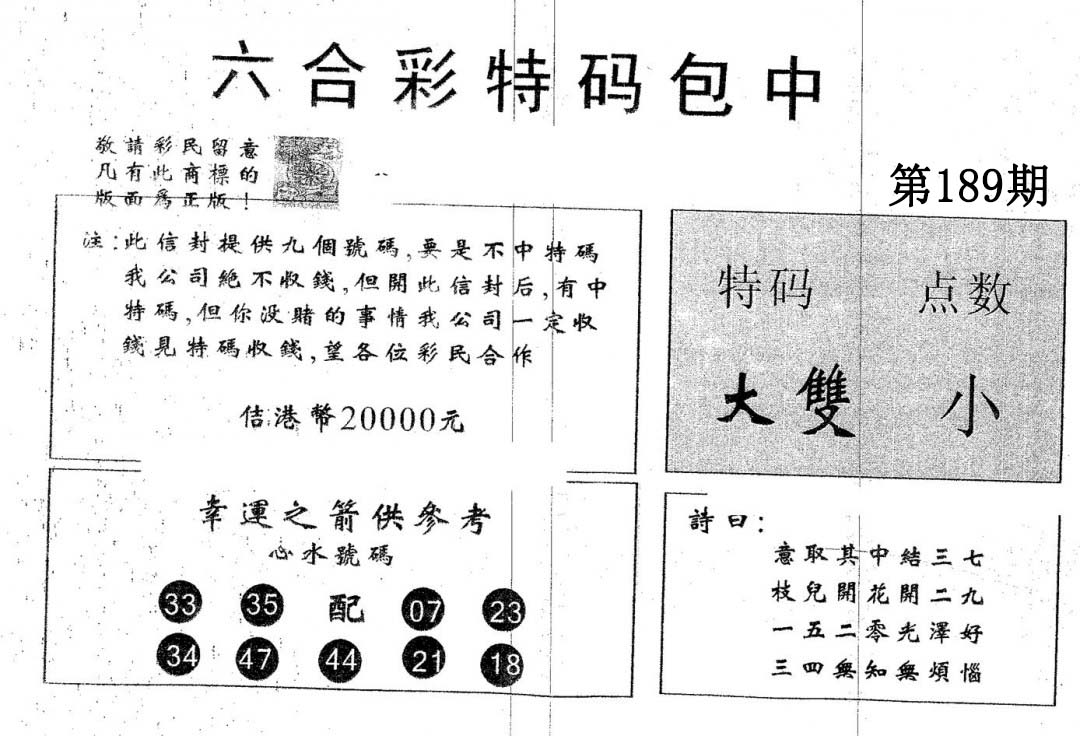 六合彩特码包中
敬請彩民留意
凡有此商標的
版面爲正版！
第189期
注：此信封提供九個號碼，要是不中特碼
我公司絶不收錢，但開此信封后，有中
特碼，但你没賭的事情我公司一定收
錢見特碼收錢，望各位彩民合作
佶港幣20000元
特码 点数
大雙 小
幸運之箭供參考
心水號碼
33 35 配 07 23
34 47 44 21 18
詩曰：
意取其中結三七
枝兒開花開二九
一五二零光澤好
三四無知無煩惱